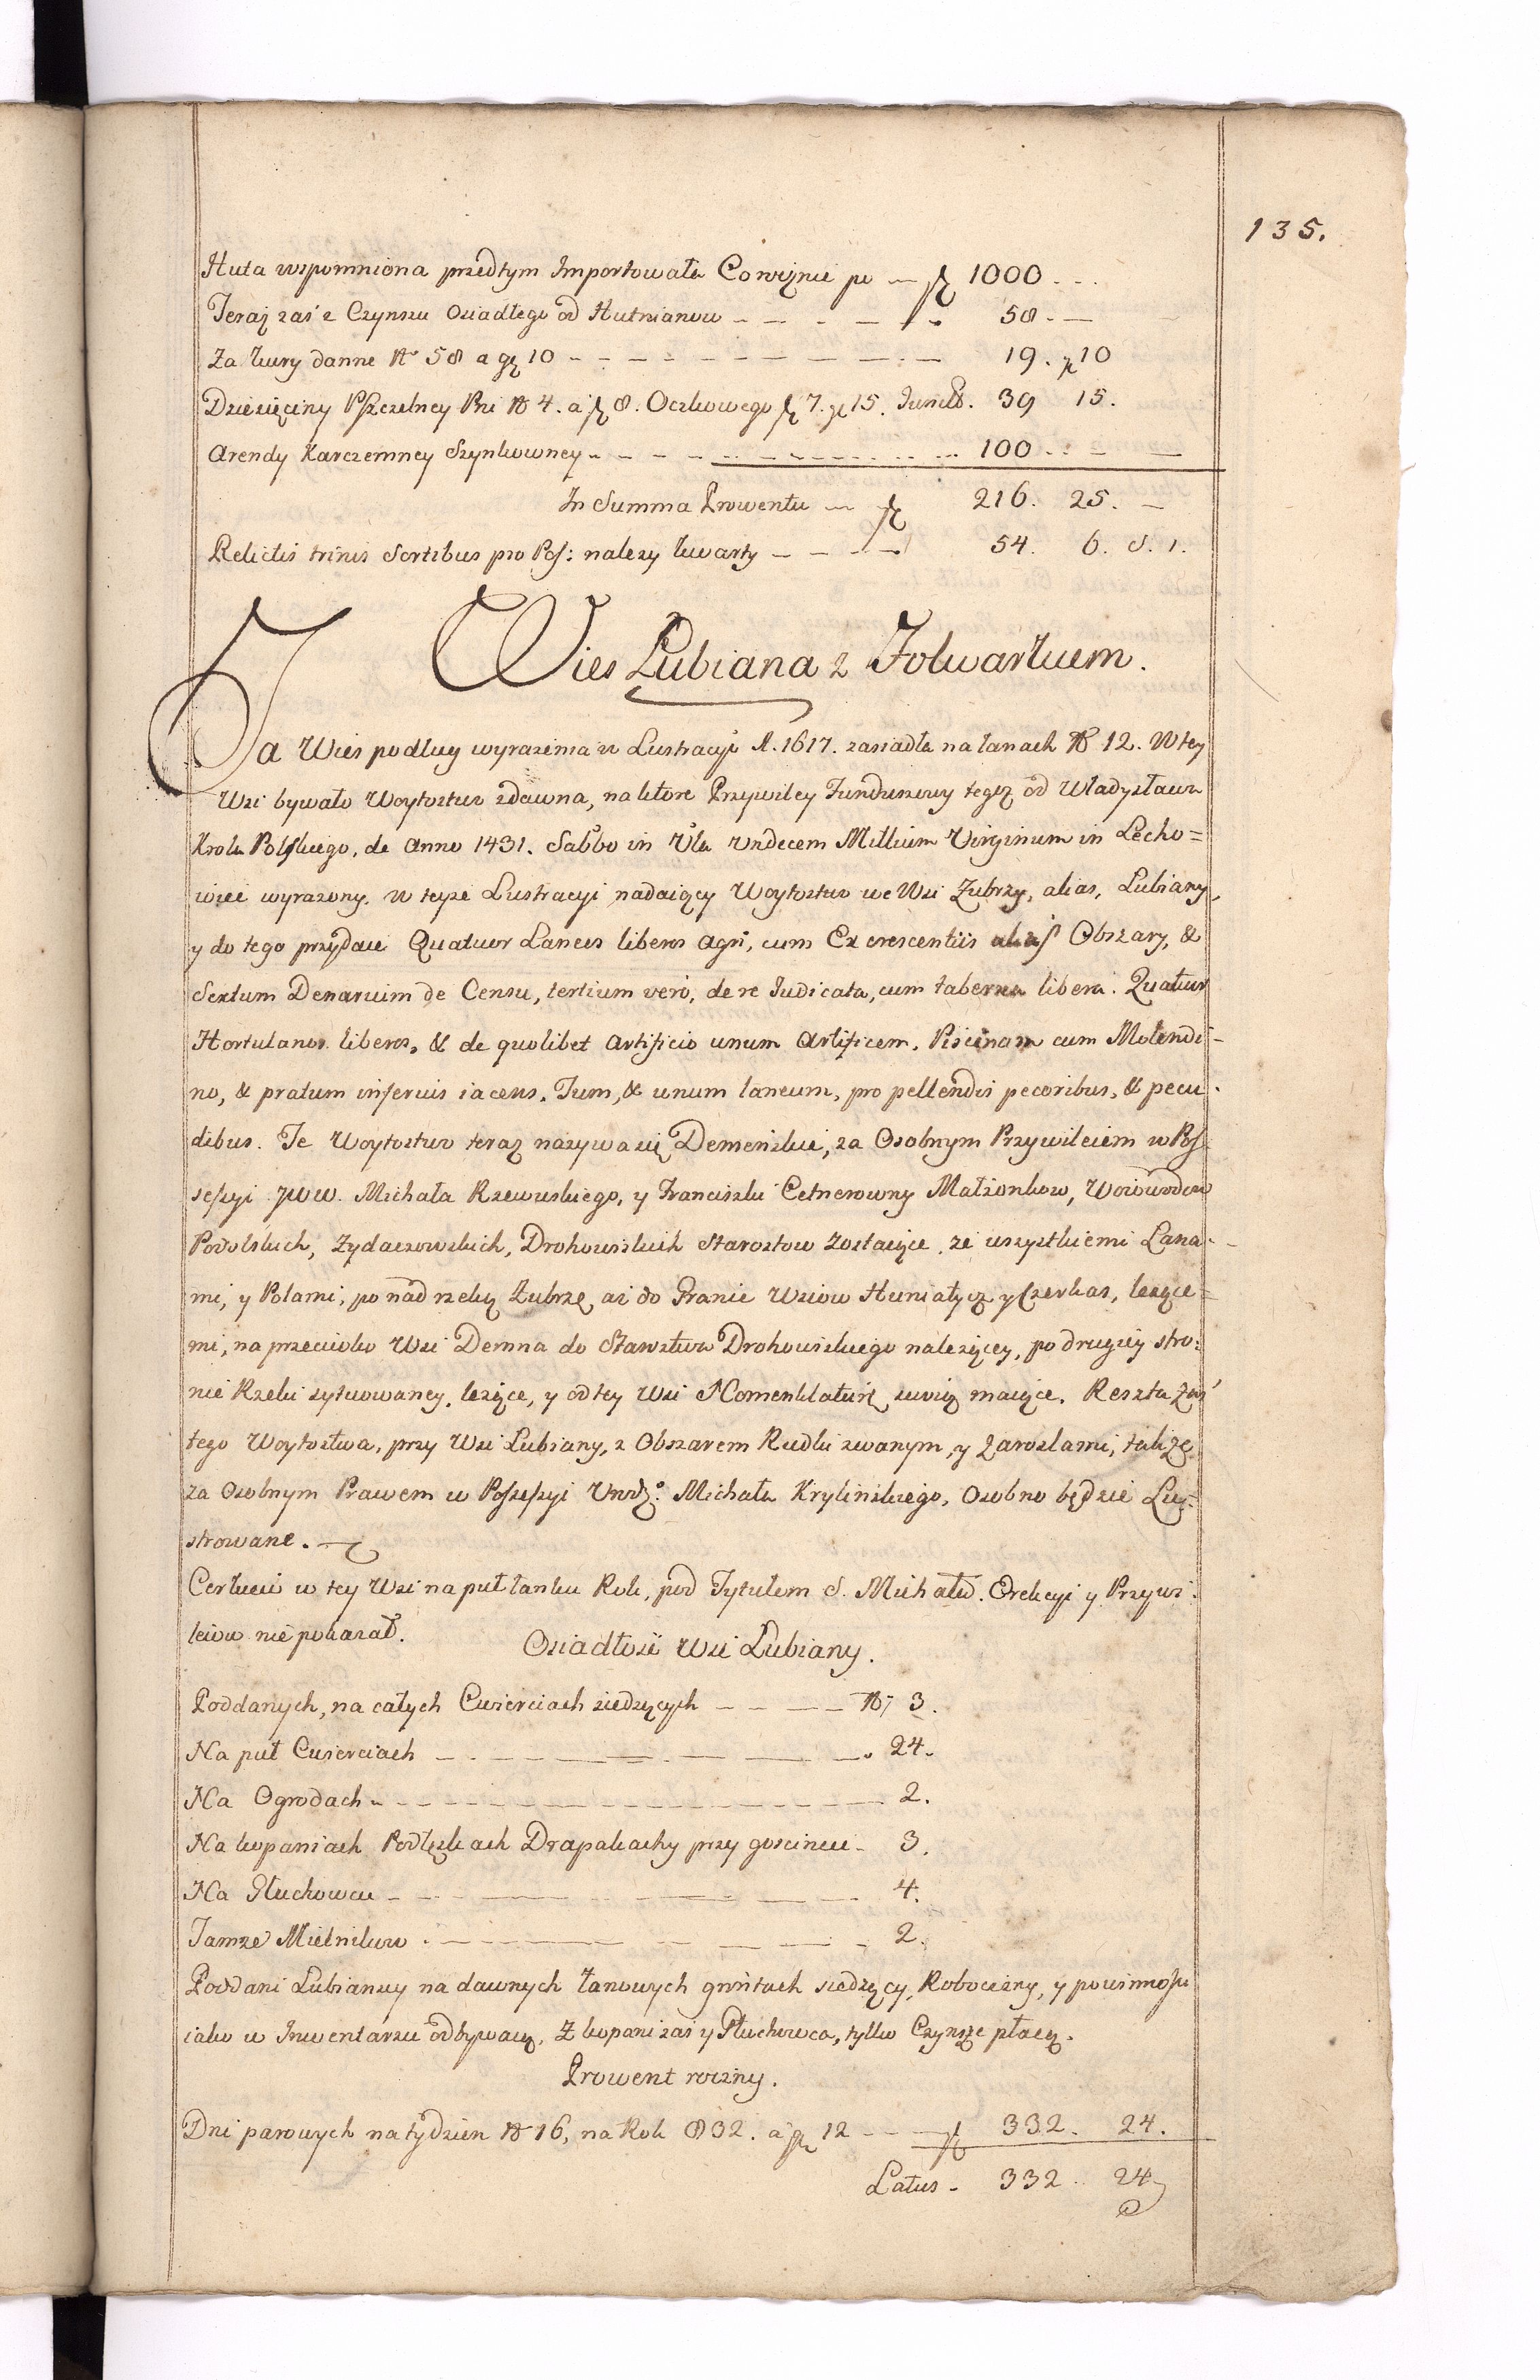 135.
Huta wspomniona przedtym Importowała Corocznie po — fl 1000 . . .
Teraz zaś z Czynszu osiadłego od Hutnianow — — . — — 58 . —
Za kury danne № 58 a gr 10 — — — — — — — — — 19 . gr 10
Dziesięciny Pszczelney Pni № 4. a fl 8. Oczkowego fl 7. gr 15. 39 15.
Arendy Karczemney Szynkowney — — — — — — 100 . . — —
In Summa Prowentu — fl 216. 25. —
Relictis trinis Sortibus pro Pos: nalezy kwarty — — — — 54. 6. S. 1.
Wies Lubiana z Folwarkiem.
Ta Wies podług wyrazenia w Lustracyi A. 1617. zasiadła na łanach № 12. W tey
Wsi bywało Woytostwo zdawna, na ktore Przywiley Funduszowy tegoz od Władysława
Krola Polskiego, de Anno 1431. Sabbo in Vla Undecem Millium Virginum in Lecho=
wiec wyrazony. w teyze Lustracyi nadaiący Woytostwo we Wsi Zubrzy, alias, Lubiany,
y do tego przydaie Quatuor Laneos liberos agri, cum Excrescentiis alias Obszary, &
Sextum Denarium de Censu, tertium vero, de re Iudicata, cum taberna libera. Quatuor
Hortulanos liberos, & de quolibet artificio unum Artificem, Piscinam cum Molendi-
no, & pratum inferius iacens. Tum, & unum laneum, pro pellendis pecoribus, & pecu-
dibus. Te Woytostwo teraz nazywa się Demenskie, za Osobnym Przywileiem w Pos-
sessyi JWW. Michała Rzewuskiego, y Franciszki Cetnerowny Małżonkow, Woiewodow
Podolskich, Zydaczowskich, Drohowiskich Starostow zostaiące, ze wszystkiemi Łana-
mi, y Polami, ponad rzeką Zubrzę az do Granic Wsiow Huniatycz y Czerkas, lezące=
mi, naprzeciwko Wsi Demna do Starostwa Drohowiskiego nalezącey, po drugiey stro:
nie Rzeki sytuowaney, lezące, y od tey Wsi Nomenklaturę swoią maiące. Reszta zaś
tego Woytostwa, przy Wsi Lubiany, z Obszarem Rudki zwanym, y zaroslami, takze
za Osobnym Prawem w Possessyi Urodz: Michała Krylinskiego, Osobno będzie Lu-
strowane. —
Cerkwia w tey Wsi na puł łanku Roli, pod Tytułem S. Michała. Erekcyi y Przywi:
leiow nie pokazał.
Osiadłość Wsi Lubiany.
Poddanych, na całych Cwierciach siedzących — — — — № 3.
Na puł Cwierciach — — — — — — 24.
Na Ogrodach — — — — — — — 2.
Na kopaniach Podłęzkach Drapakachy przy goscincu — 3.
Na Głuchowcu — — — — — — 4.
Tamze Mielnikow — — — — — — 2.
Poddani Lubianscy na dawnych Łanowych gruntach siedzący, Robocizny, y powinnosci
iako w Inwentarzu odbywaią, Z kopani zaś y Głuchowca, tylko Czynsze płacą.
Prowent roczny.
Dni parowych na tydzien № 16, na Rok 832. a gr 12 — — — fl 332. 24.
Latus — 332 . . 24